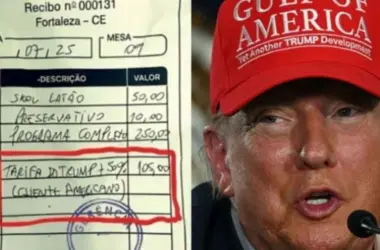 Recibo nº 000131
Fortaleza - CE
MESA
/07/25
09
-DESCRIÇÃO-
VALOR
SKOL LATÃO 50,00
PRESERVATIVO 10,00
PROGRAMA COMPLETO 250,00
TARIFA DI TRUMP + 50% 105,00
(CLIENTE AMERICANO)
GERÊNCIA
GULF OF
AMERICA
Yet Another TRUMP Development